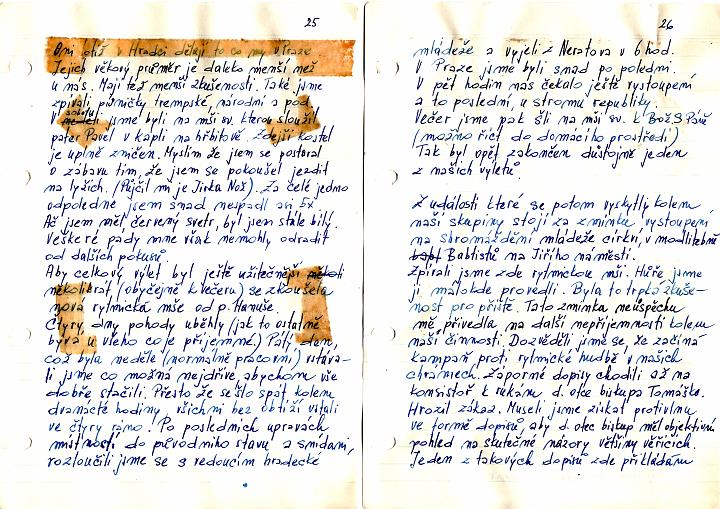 25
Oni totiž v Hradci dělají to co my v Praze
Jejich věkový průměr je daleko menší než
u nás. Mají též menší zkušenosti. Také jsme
zpívali písničky trempské, národní a pod.
V sobotu jsme byli na mši sv. kterou sloužil
páter Pavel v kapli na hřbitově. Zdejší kostel
je úplně zničen. Myslím že jsem se postaral
o zábavu tím, že jsem se pokoušel jezdit
na lyžích. (Půjčil mi je Jirka Nož). Za celé jedno
odpoledne jsem snad nespadl ani 5x.
Ač jsem měl červený svetr, byl jsem stále bílý.
Veškeré pády mne však nemohly odradit
od dalších pokusů.
Aby celkový výlet byl ještě užitečnější
několikrát (obyčejně k večeru) se zkoušela
nová rytmická mše od p. Hanuše.
Čtyry dny pohody uběhly (jak to ostatně
bývá u všeho co je příjemné.) Pátý den,
což byla neděle (normálně pracovní) vstáva-
li jsme co možná nejdříve, abychom vše
dobře stačili. Přesto že se šlo spát kolem
dvanácté hodiny, všichni bez obtíží vstali
ve čtyry ráno! Po posledních úpravách
místností do původního stavu a snídani,
rozloučili jsme se s vedoucím hradecké
26
mládeže a vyjeli z Neratova v 6 hod.
V Praze jsme byli snad po poledni.
V pět hodin nás čekalo ještě vystoupení
a to poslední, u stromu republiky.
Večer jsme pak šli na mši sv. k Bož. S. Páně
(možno říct do domácího prostředí)
Tak byl opět zakončen důstojně jeden
z našich výletů.
Z událostí které se potom vyskytly kolem
naší skupiny stojí za zmínku, vystoupení
na shromáždění mládeže církví, v modlitebně
Baptistů na Jiřího náměstí.
Zpívali jsme zde rytmickou mši. Hůře jsme
ji málokde provedli. Byla to trpká zkuše-
nost pro příště. Tato zmínka neúspěchu
mě přivedla na další nepříjemnosti kolem
naší činnosti. Dozvěděli jsme se, že začíná
kampaň proti rytmické hudbě v našich
chrámech. Záporné dopisy chodili až na
konsistoř k rukám d. otce biskupa Tomáška.
Hrozil zákaz. Museli jsme získat protivlnu
ve formě dopisů, aby d. otec biskup měl objektivní
pohled na skutečné názory většiny věřících.
Jeden z takových dopisů zde přikládám